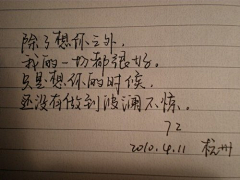 除了想你之外，
我的一切都很好。
只是想你的时候，
还没有做到波澜不惊。
72
2010.4.11 杭州